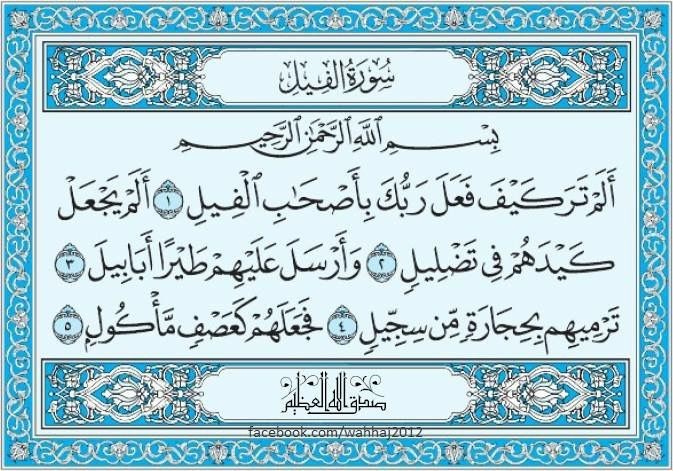 سُورَةُ الفِيلِ
بِسْمِ اللَّهِ الرَّحْمَٰنِ الرَّحِيمِ
أَلَمْ تَرَ كَيْفَ فَعَلَ رَبُّكَ بِأَصْحَابِ الْفِيلِ ١ أَلَمْ يَجْعَلْ
كَيْدَهُمْ فِي تَضْلِيلٍ ٢ وَأَرْسَلَ عَلَيْهِمْ طَيْرًا أَبَابِيلَ ٣
تَرْمِيهِم بِحِجَارَةٍ مِّن سِجِّيلٍ ٤ فَجَعَلَهُمْ كَعَصْفٍ مَّأْكُولٍ ٥
صدق الله العظيم
facebook.com/wahhaj2012